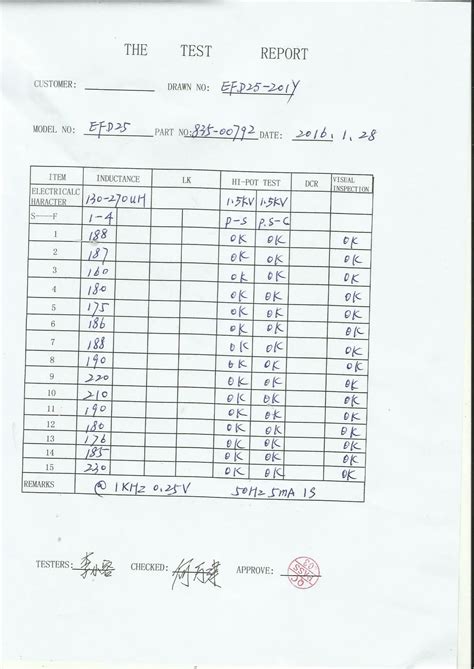 THE TEST REPORT
CUSTOMER: DRAWN NO: EFD25-201Y
MODEL NO: EFD25 PART NO: 835-00792 DATE: 2016.1.28
ITEM INDUCTANCE LK HI-POT TEST DCR VISUAL INSPECTION
ELECTRICALC HARACTER 130-270uH 1.5KV 1.5KV
S----F 1-4 P-S P.S-C
1 188 OK OK OK
2 187 OK OK OK
3 160 OK OK OK
4 180 OK OK OK
5 175 OK OK OK
6 186 OK OK OK
7 188 OK OK OK
8 190 OK OK OK
9 220 OK OK OK
10 210 OK OK OK
11 190 OK OK OK
12 180 OK OK OK
13 176 OK OK OK
14 185 OK OK OK
15 230 OK OK OK
REMARKS @ 1KHz 0.25V 50Hz 5mA 1S
TESTERS: CHECKED: APPROVE: